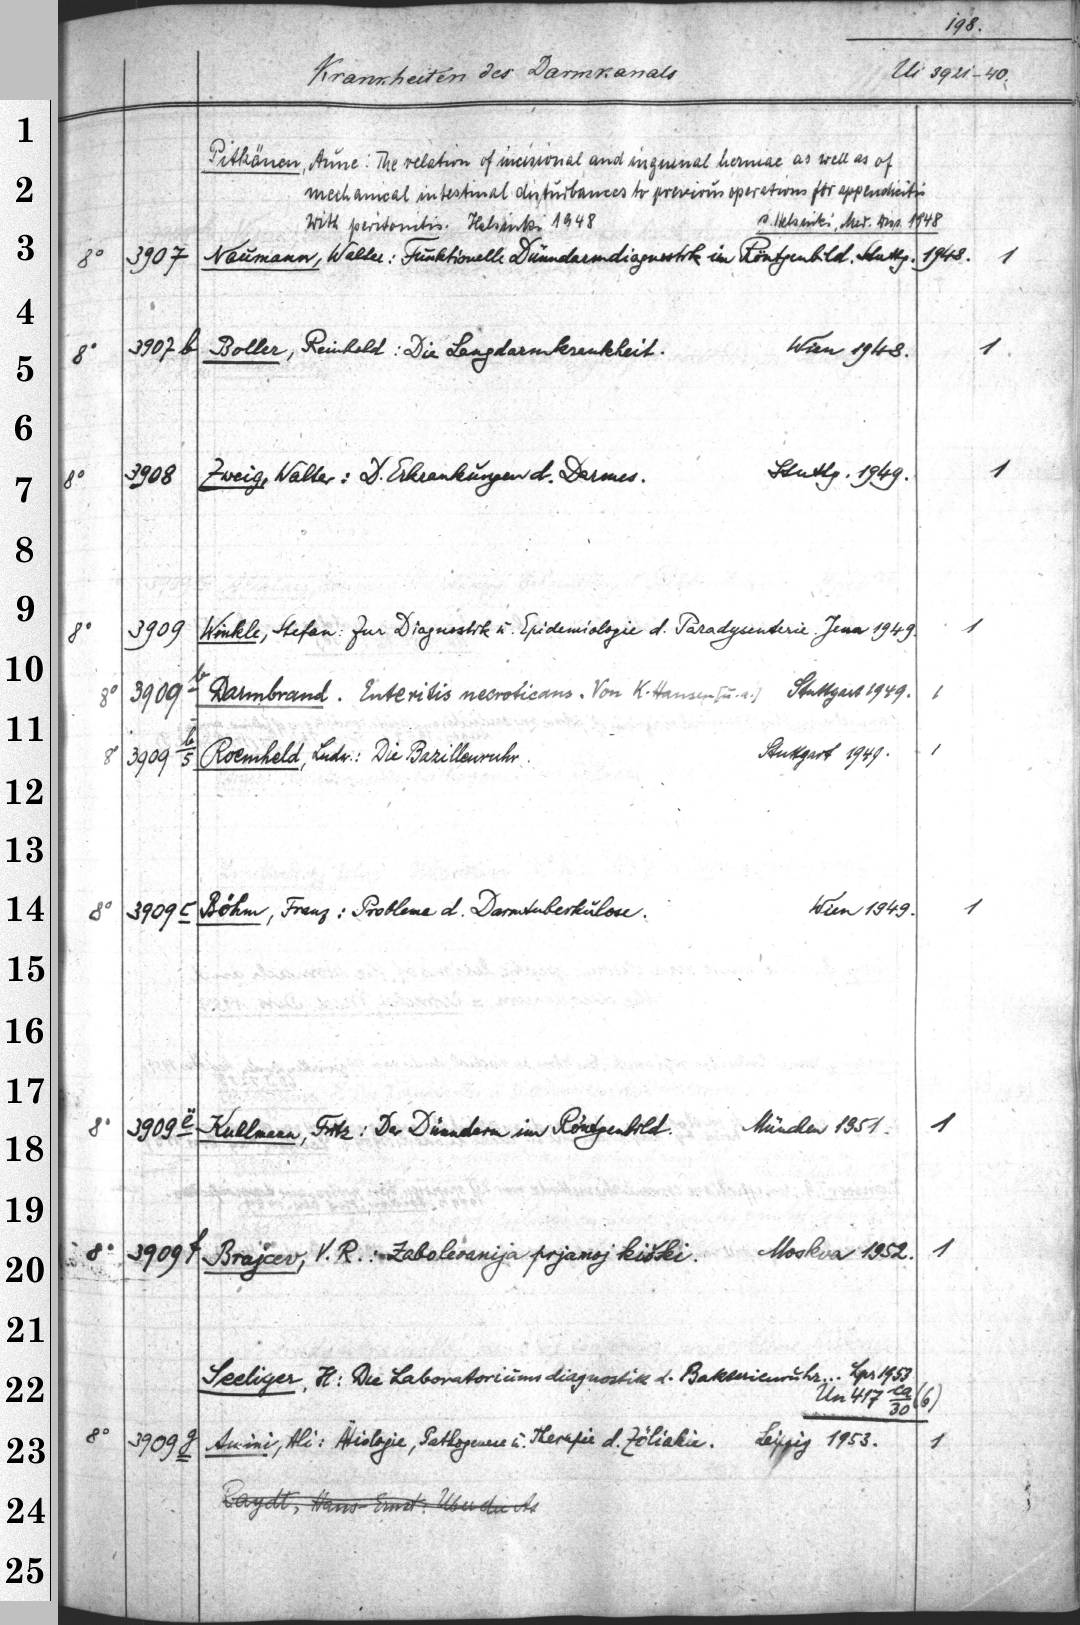 198.
Krankheiten des Darmkanals Ui 3921-40.
1
Pitkänen, Aune: The relation of incisional and inguinal herniae as well as of
2
mechanical intestinal disturbances to previous operations for appendicitis
with peritonitis. Helsinki 1948 s. Helsinki, Med. Diss. 1948
3
8° 3907 Naumann, Walter: Funktionelle Dünndarmdiagnostik im Röntgenbild. Stuttg. 1948. 1
4
8° 3907 b Boller, Reinhold: Die Langdarmkrankheit. Wien 1948. 1
5
6
8° 3908 Zweig, Walter: D. Erkrankungen d. Darmes. Stuttg. 1949. 1
7
8
9
8° 3909 Winkle, Stefan: Zur Diagnostik u. Epidemiologie d. Paradysenterie. Jena 1949. 1
10
8° 3909 b Darmbrand. Enteritis necroticans. Von K. Hansen [u. a.] Stuttgart 1949. 1
11
8° 3909 b/5 Roemheld, Ludw.: Die Bazillenruhr. Stuttgart 1949. 1
12
13
14
8° 3909 c Böhm, Franz: Probleme d. Darmtuberkulose. Wien 1949. 1
15
16
17
8° 3909 e Kuhlmann, Fritz: Der Dünndarm im Röntgenbild. München 1951. 1
18
19
8° 3909 f Brajcev, V. R.: Zabolevanija prjamoj kiški. Moskva 1952. 1
20
21
Seeliger, H: Die Laboratoriumsdiagnostik d. Bakterienruhr... Lpz 1953
22
Un 417 ca/30 (6)
23
8° 3909 g Amini, Ali: Ätiologie, Pathogenese u. Therapie d. Zöliakie. Leipzig 1953. 1
24
Raydt, Hans-Ernst: Über die As
25